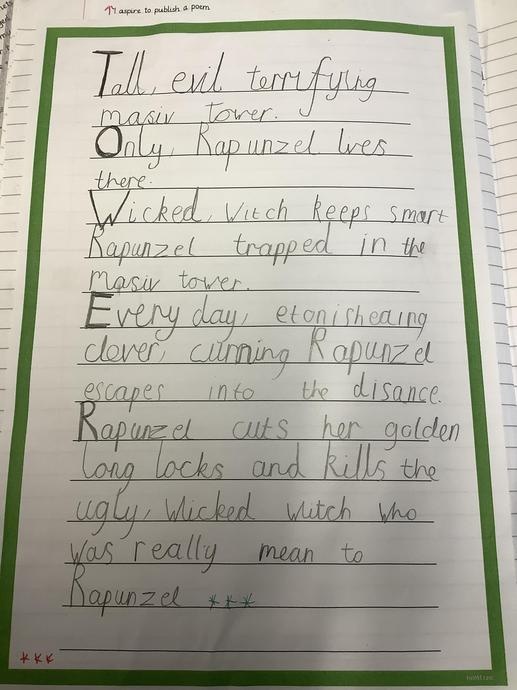 I aspire to publish a poem
Tall, evil terrifying
masiv tower.
Only, Rapunzel lives
there.
Wicked, witch keeps smart
Rapunzel trapped in the
masiv tower.
Every day, etonisheaing
clever, cunning Rapunzel
escapes into the disance.
Rapunzel cuts her golden
long locks and kills the
ugly, wicked witch who
was really mean to
Rapunzel ***
***